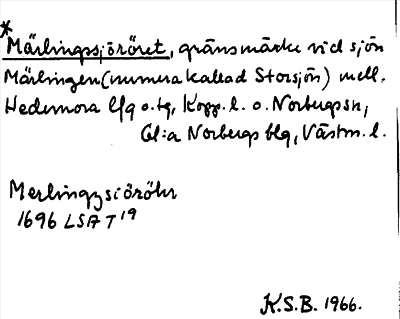 *
Märlingssjöröret, gränsmärke vid sjön
Märlingen (numera kallad Storsjön) mell.
Hedemora lfg o. tg, Kopp. l. o. Norbergs sn,
Gl:a Norbergs blg, Västm. l.
Merlingzsiöröhr
1696 LSA T 19
K.S.B. 1966.